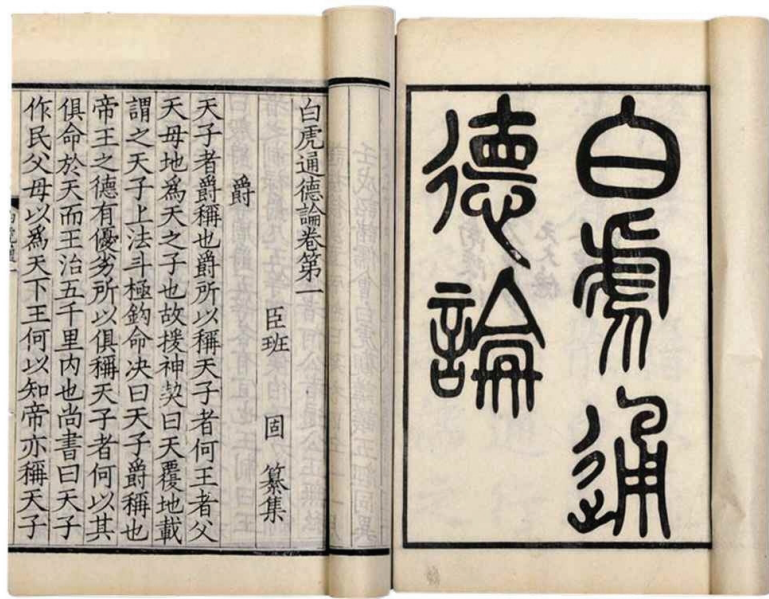 白虎通
德論
白虎通德論卷第一
臣班　固　纂集
爵
天子者爵稱也爵所以稱天子者何王者父
天母地爲天之子也故援神契曰天覆地載
謂之天子上法斗極鈎命决曰天子爵稱也
帝王之德有優劣所以俱稱天子者何以其
俱命於天而王治五千里内也尚書曰天子
作民父母以爲天下王何以知帝亦稱天子